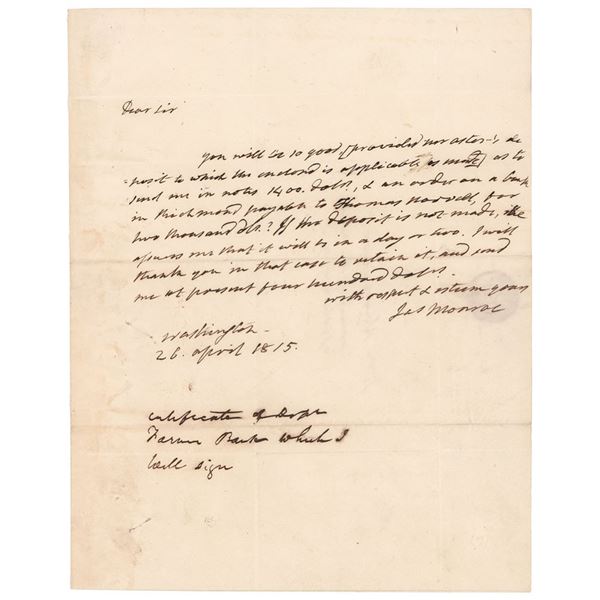 Dear Sir
you will be so good (provided the
posit to which the enclosed is applicable is made) as to
send me in notes 1400. dolrs, & an order on a bank
in Richmond payable to Thomas for
two thousand dlrs? If the deposit is not made,
assures me that it will be in a day or two. I will
thank you in that case to retain it, and send
me at present four hundred dolrs.
with respect & esteem yours
Jas Monroe
Washington
26. april 1815.
certificate of
Farmers Bank which I
will sign